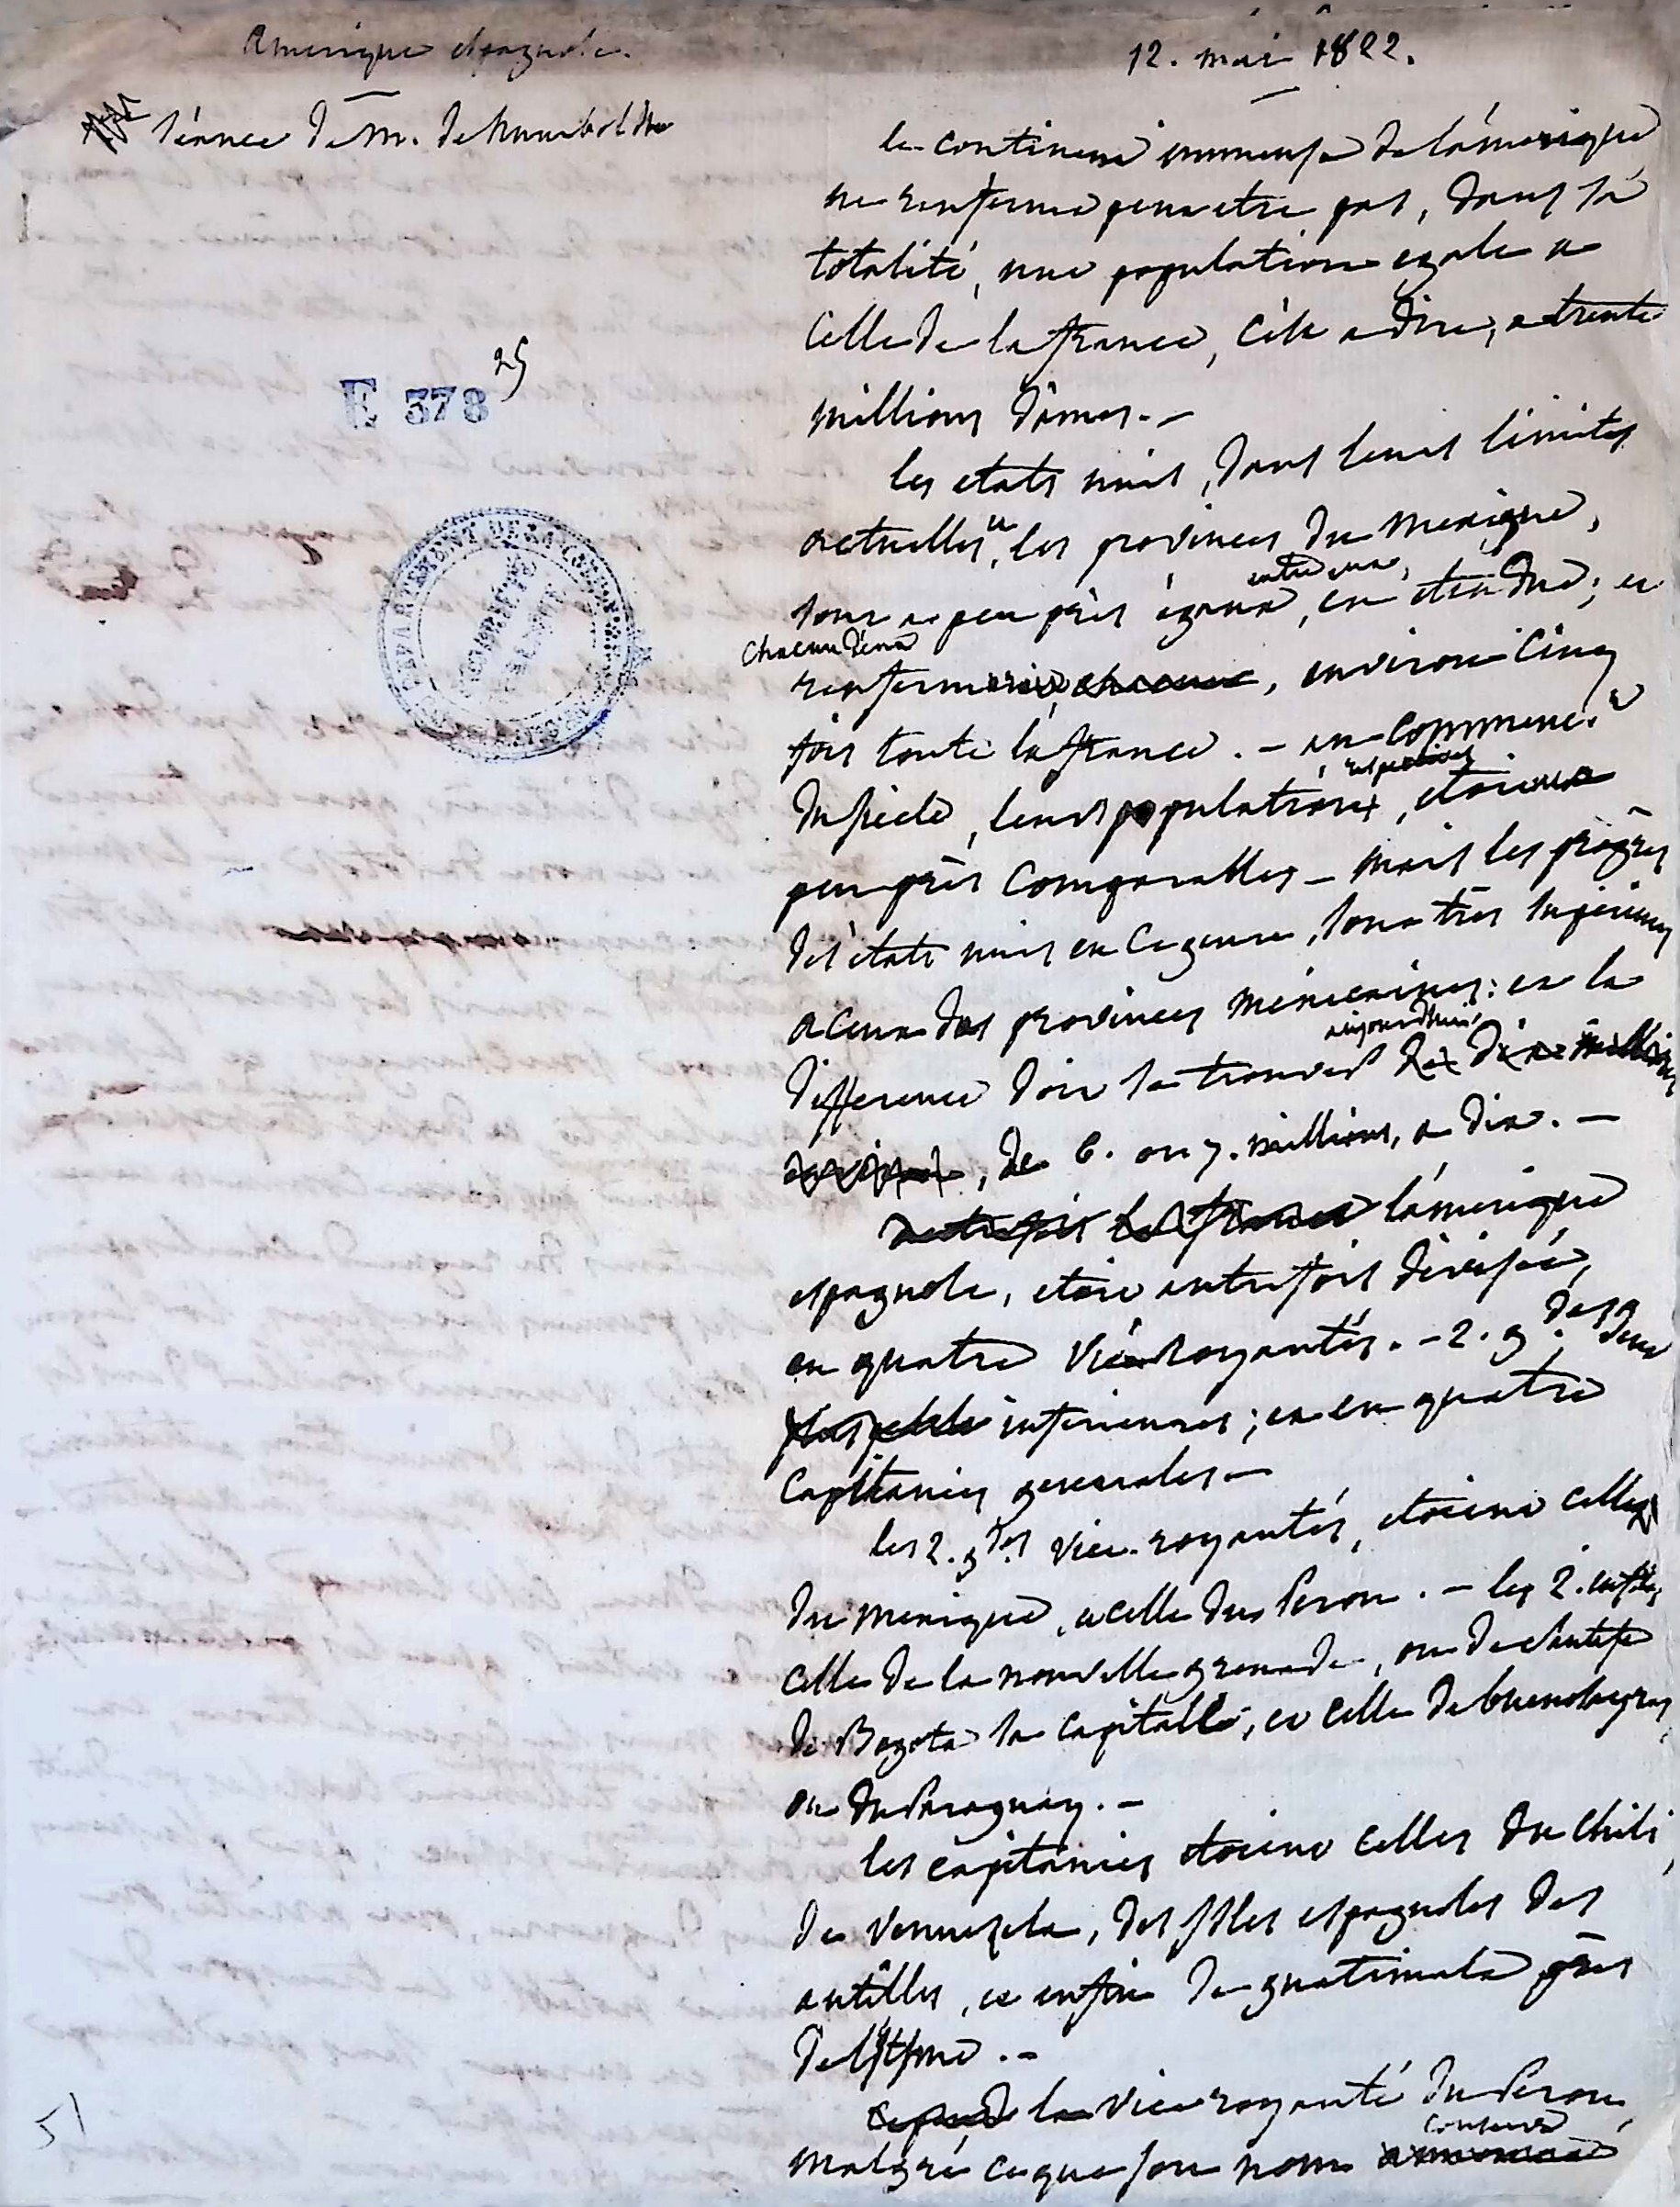 Amerique espagnole.
12. mai 1822.
séance de M. de humboldt
E 378
25
le continent immense de l'amerique
ne renferme peut etre pas, dans sa
totalité, une population egale a
celle de la france, c'est a dire, a trente
millions d'ames. -
les etats unis, dans leurs limites
actuelles, et les provinces du mexique,
entre eux,
sont a peu près égaux, en etendue; et
chacun d'eux
renferme, environ cinq
fois toute la france. - au commencement
respectives
du siecle, leurs populations, etoient a
peu près comparables - mais les progrès
des etats unis en ce genre, sont très superieurs
a ceux des provinces mexicaines: et la
aujourdhui,
difference doit se trouver de dix millions
, de 6. ou 7. millions, a dix. -
l'amerique
espagnole, etoit autrefois divisée,
en quatre vice royautés. - 2. gdes deux
plus petites inferieures; et en quatre
capitanies generales -
les 2. gdes vice-royautés, etoient celles
du mexique, et celle du Perou. - les 2. infres,
celle de la nouvelle grenade, ou de santa fe
de Bogota sa capitalle, et celle de buenos ayres,
ou du Paraguay. -
les capitanies etoient celles du Chili,
de Venuezela, des Isles espagnoles des
antilles, et enfin de guatimala près
de l'Isthme. -
la vice royauté du Perou,
conserve
malgré ce que son nom
51